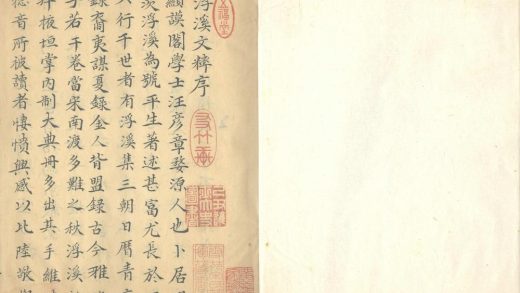 浮溪文粹序
顯謨閣學士汪彥章婺源人也卜居
浮溪為號平生著述甚富尤長於
行千世者有浮溪集三朝日曆青
錄裔夷謀夏錄金人背盟錄古今雅
若干卷當宋南渡多難之秋浮溪
掖垣掌內制大典冊多出其手維
德音所被讀者悽憤興感以比陸敬